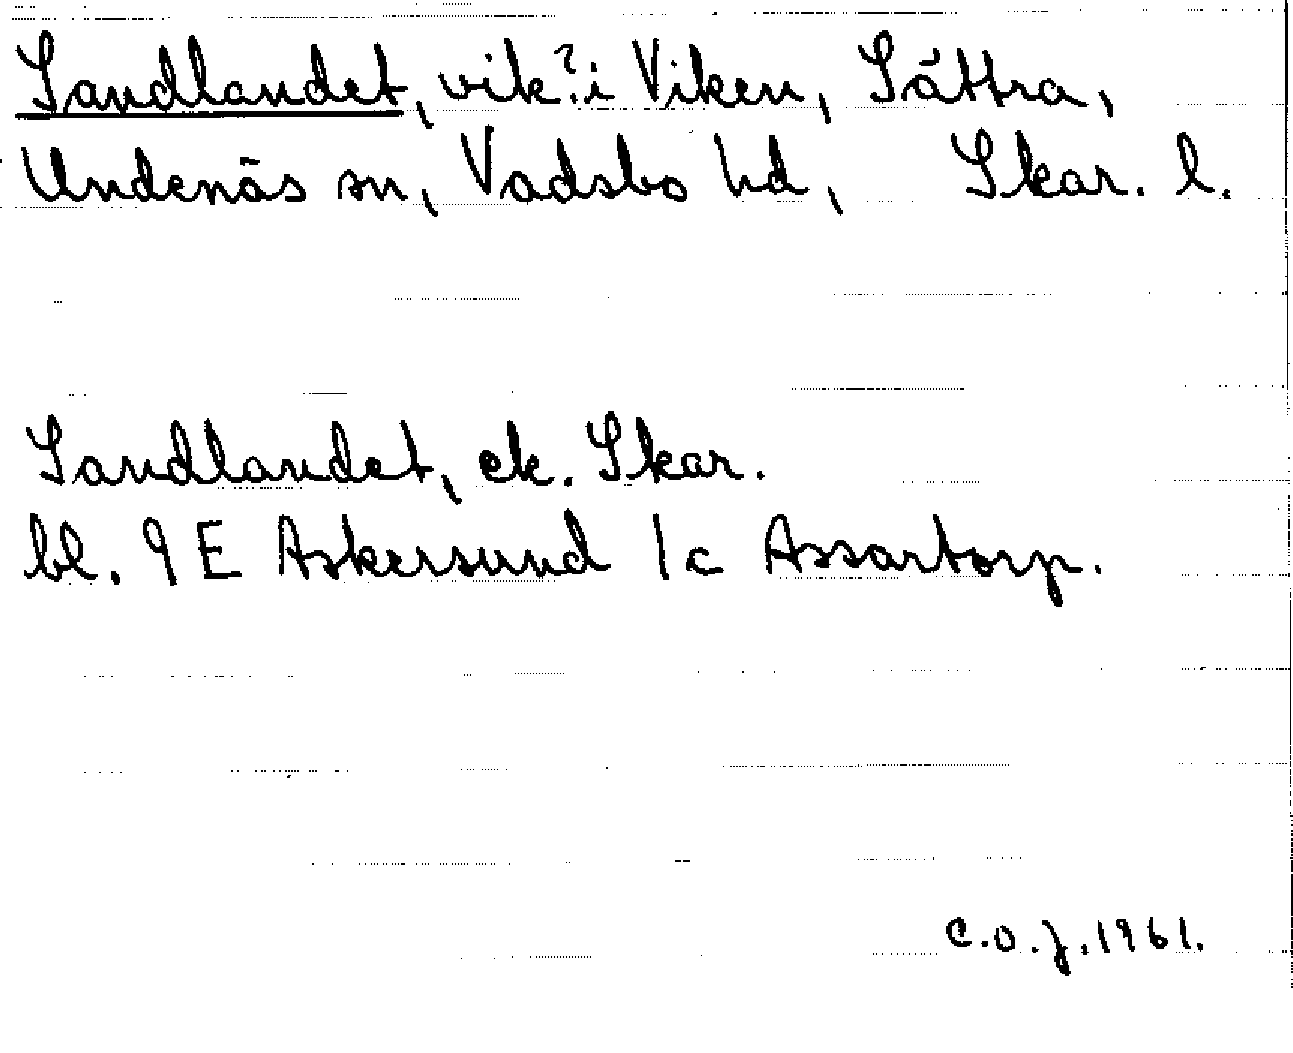 Sandlandet, vik? i Viken, Sättra,
Undenäs sn, Vadsbo hd, Skar. l.
Sandlandet, ek. Skar.
bl. 9 E Askersund 1c Assartorp.
C.O.J. 1961.